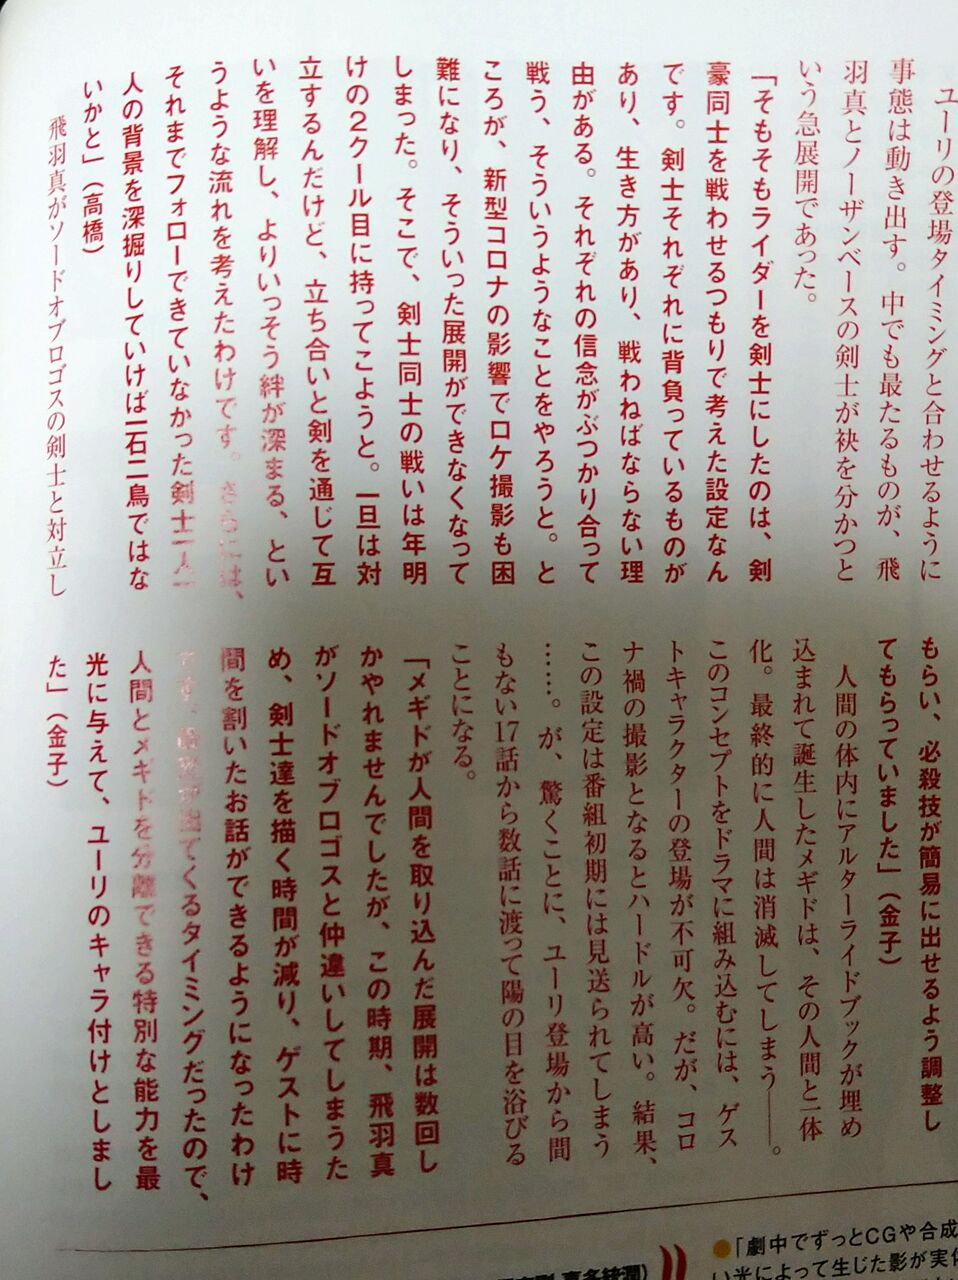 ユーリの登場タイミングと合わせるように
事態は動き出す。中でも最たるものが、飛
羽真とノーザンベースの剣士が袂を分かつと
いう急展開であった。
「そもそもライダーを剣士にしたのは、剣
豪同士を戦わせるつもりで考えた設定なん
です。剣士それぞれに背負っているものが
あり、生き方があり、戦わねばならない理
由がある。それぞれの信念がぶつかり合って
戦う、そういうようなことをやろうと。と
ころが、新型コロナの影響でロケ撮影も困
難になり、そういった展開ができなくなって
しまった。そこで、剣士同士の戦いは年明
けの2クール目に持ってこようと。一旦は対
立するんだけど、立ち合いと剣を通じて互
いを理解し、よりいっそう絆が深まる、とい
うような流れを考えたわけです。さらには、
それまでフォローできていなかった剣士一人一
人の背景を深掘りしていけば一石二鳥ではな
いかと」(高橋)
飛羽真がソードオブロゴスの剣士と対立し
もらい、必殺技が簡易に出せるよう調整し
てもらっていました」(金子)
人間の体内にアルターライドブックが埋め
込まれて誕生したメギドは、その人間と一体
化。最終的に人間は消滅してしまう──。
このコンセプトをドラマに組み込むには、ゲス
トキャラクターの登場が不可欠。だが、コロ
ナ禍の撮影となるとハードルが高い。結果、
この設定は番組初期には見送られてしまう
……。が、驚くことに、ユーリ登場から間
もない17話から数話に渡って陽の目を浴びる
ことになる。
「メギドが人間を取り込んだ展開は数回し
かやれませんでしたが、この時期、飛羽真
がソードオブロゴスと仲違いしてしまうた
め、剣士達を描く時間が減り、ゲストに時
間を割いたお話ができるようになったわけ
です。最光が出てくるタイミングだったので、
人間とメギドを分離できる特別な能力を最
光に与えて、ユーリのキャラ付けとしまし
た」(金子)
●「劇中でずっとCGや合成
い光によって生じた影が実体